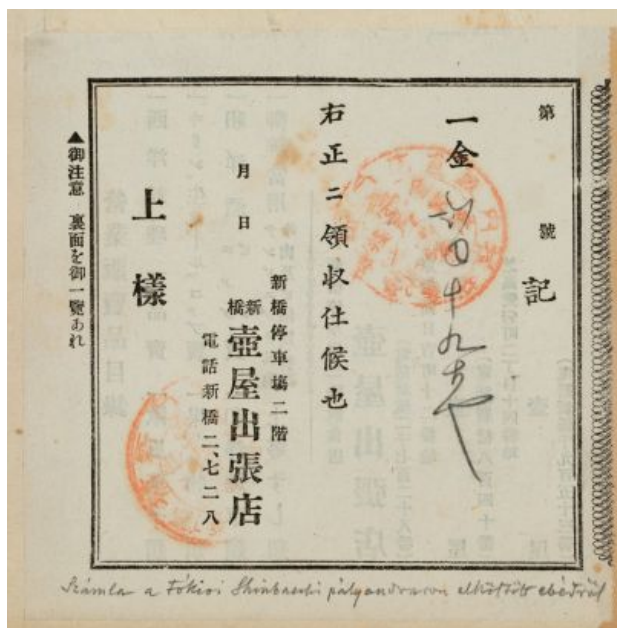 第　號
記
一金 六円十九銭や
右正ニ領収仕候也
月　日
新橋停車場二階
新橋 壺屋出張店
電話新橋二、七二八
上様
▲御注意　裏面を御一覽あれ
Számla a Tókiói Shinbashi pályaudvaron elköltött ebédről